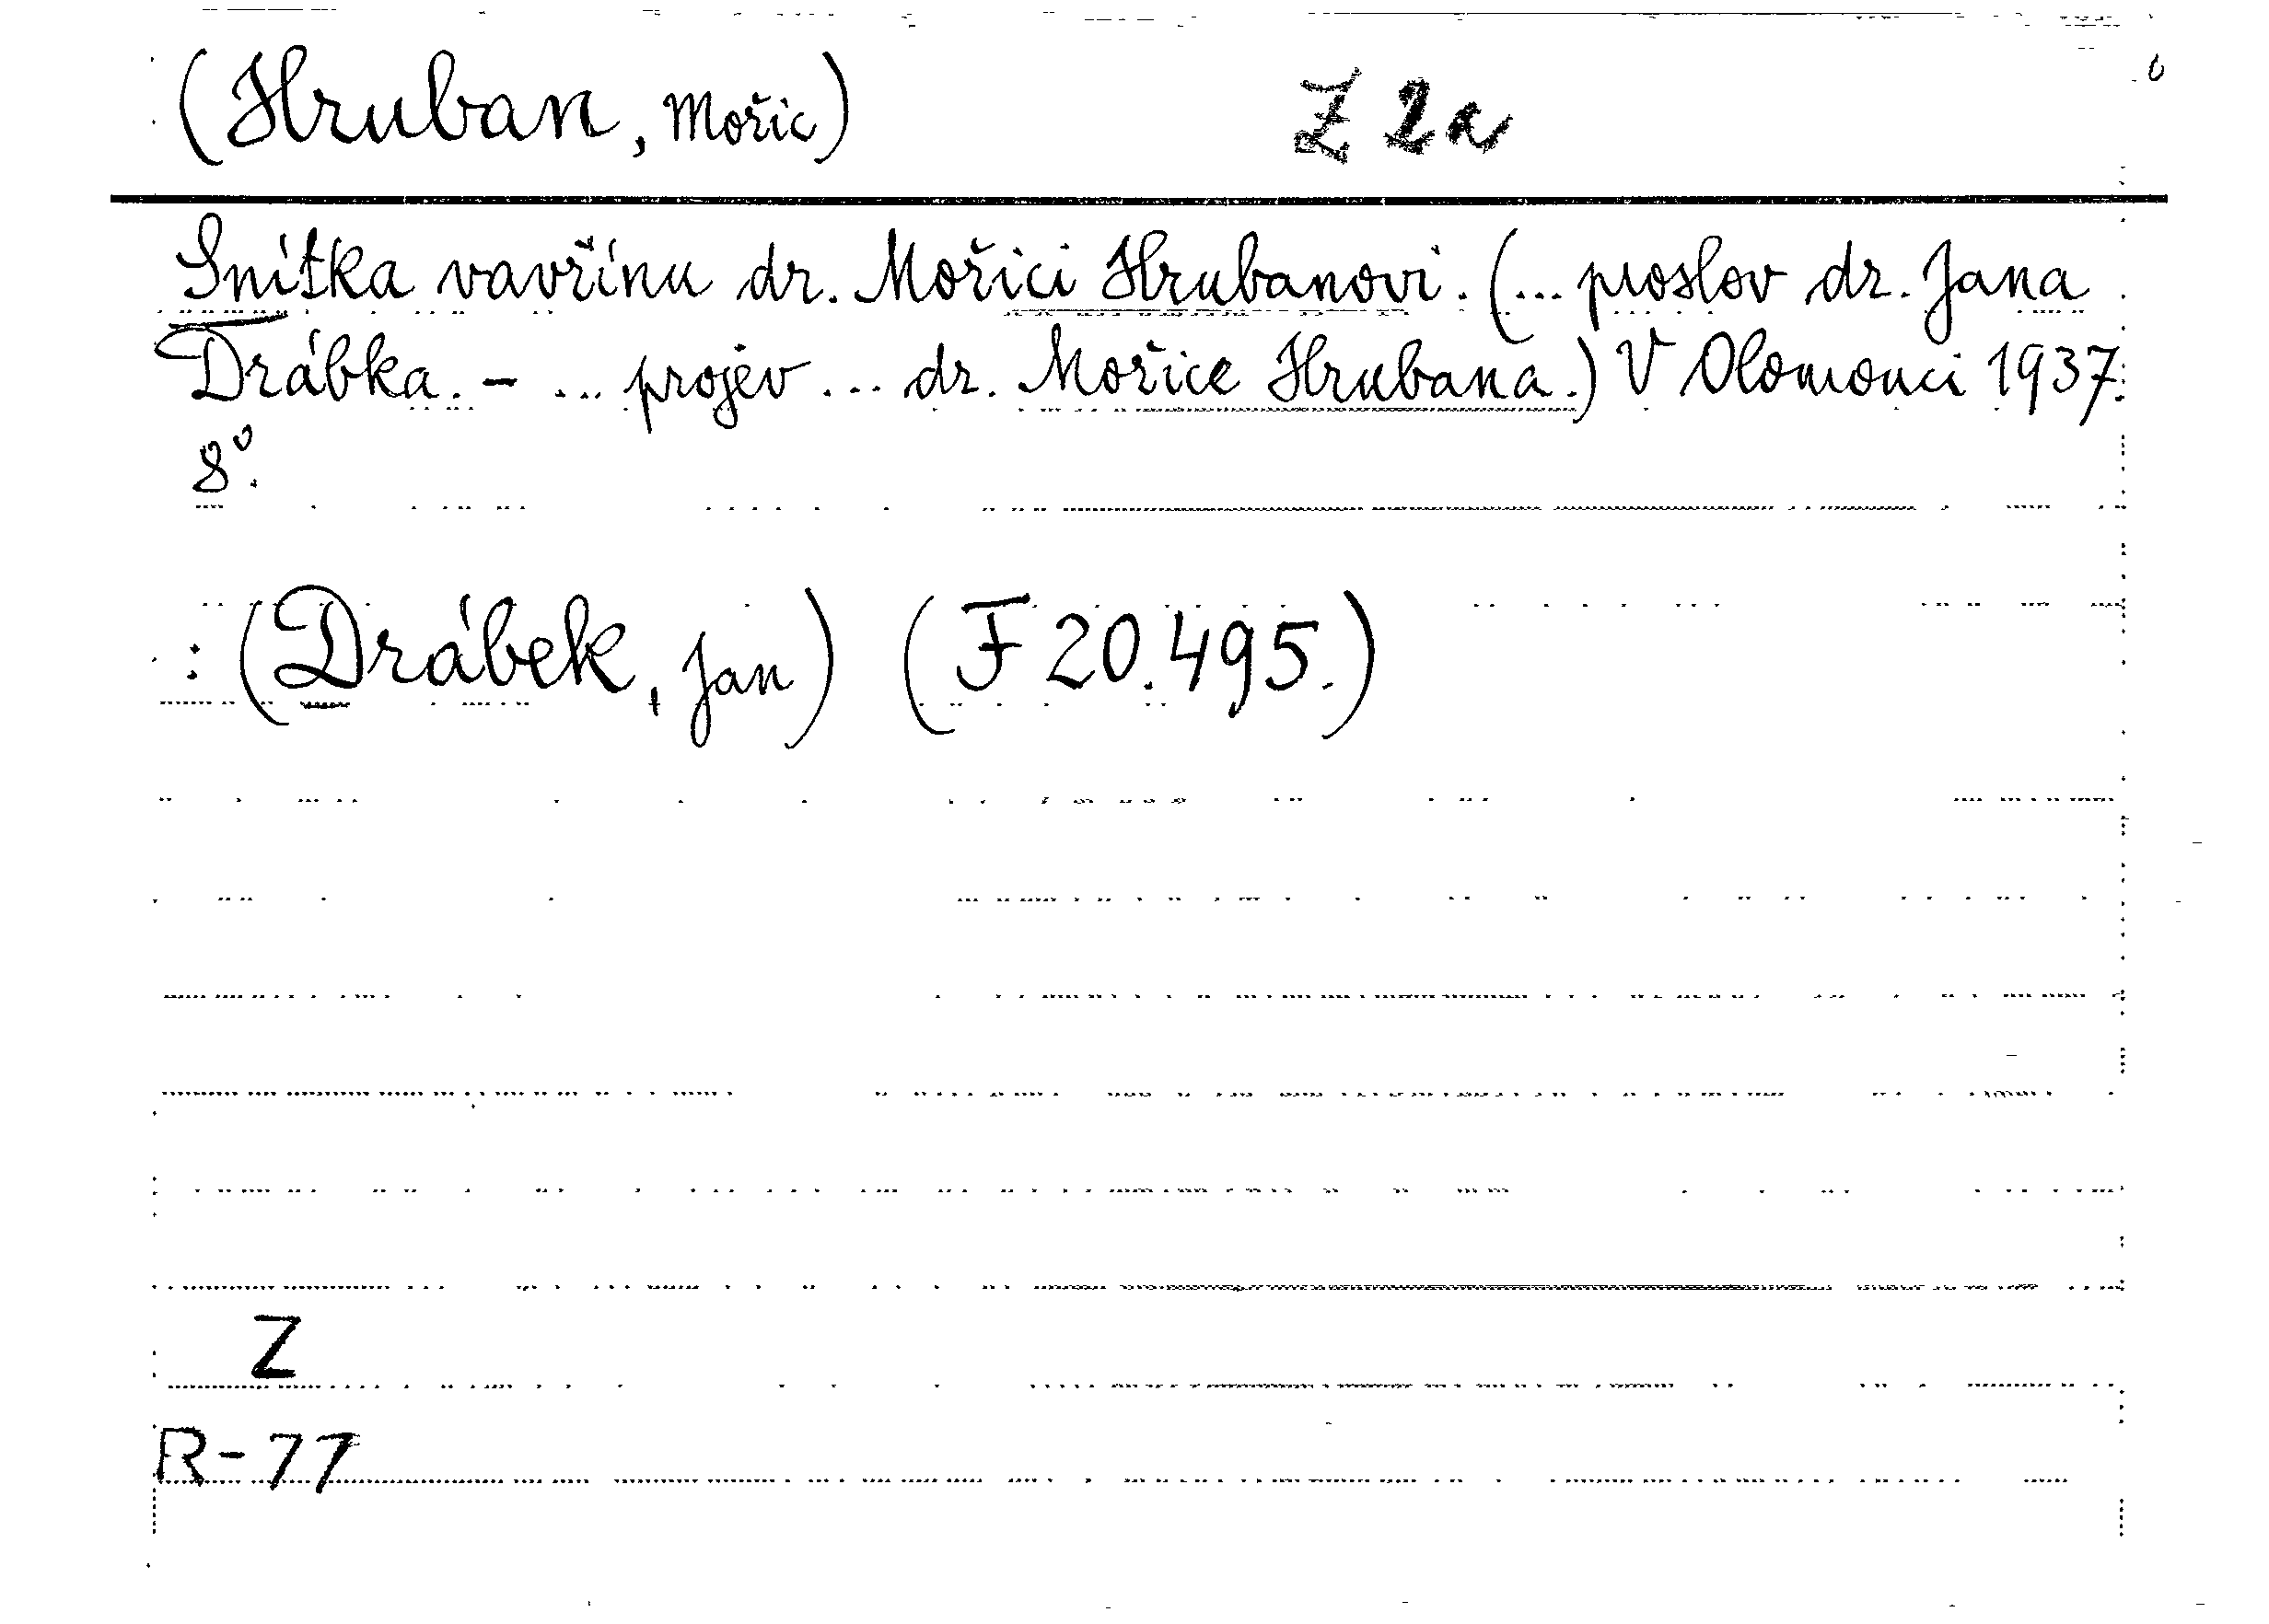 (Hruban, Mořic) Z 2a
Snítka vavřínu dr. Mořici Hrubanovi. (... proslov dr. Jana
Drábka. - ... projev ... dr. Mořice Hrubana.) V Olomouci 1937.
8°.
: (Drábek, Jan) (F 20.495.)
Z
R-77